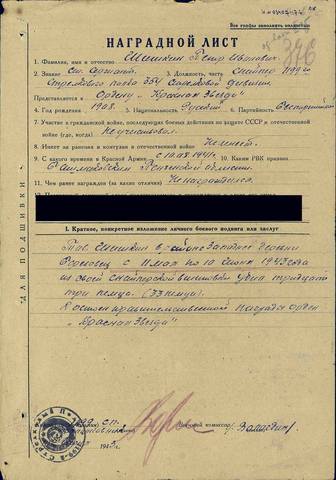 Все графы заполнять полностью
376
НАГРАДНОЙ ЛИСТ
1. Фамилия, имя и отчество Шишкин Петр Иванович
2. Звание Ст. Сержант 3. Должность, часть Снайпер 1199го
Стрелкового полка 354 Стрелковой дивизии
Представляется к
Ордену „Красная Звезда"
4. Год рождения 1908. 5. Национальность Русский 6. Партийность Беспартийный
7. Участие в гражданской войне, последующих боевых действиях по защите СССР и отечественной
войне (где, когда) Не участвовал
8. Имеет ли ранения и контузии в отечественной войне Не имеет
9. С какого времени в Красной Армии с 10.08.1941г. 10. Каким РВК призван
Пензенской области
11. Чем ранее награжден (за какие отличия) Не награждался.
I. Краткое, конкретное изложение личного боевого подвига или заслуг
Тов. Шишкин в районе западнее
с 11 мая по 10 июня 1943 года
из своей снайперской винтовки убил тридцать
три немца. (33 немца).
Достоин правительственной награды орден
„Красная Звезда"
1199 СП
комиссар
ДЛЯ ПОДШИВКИ